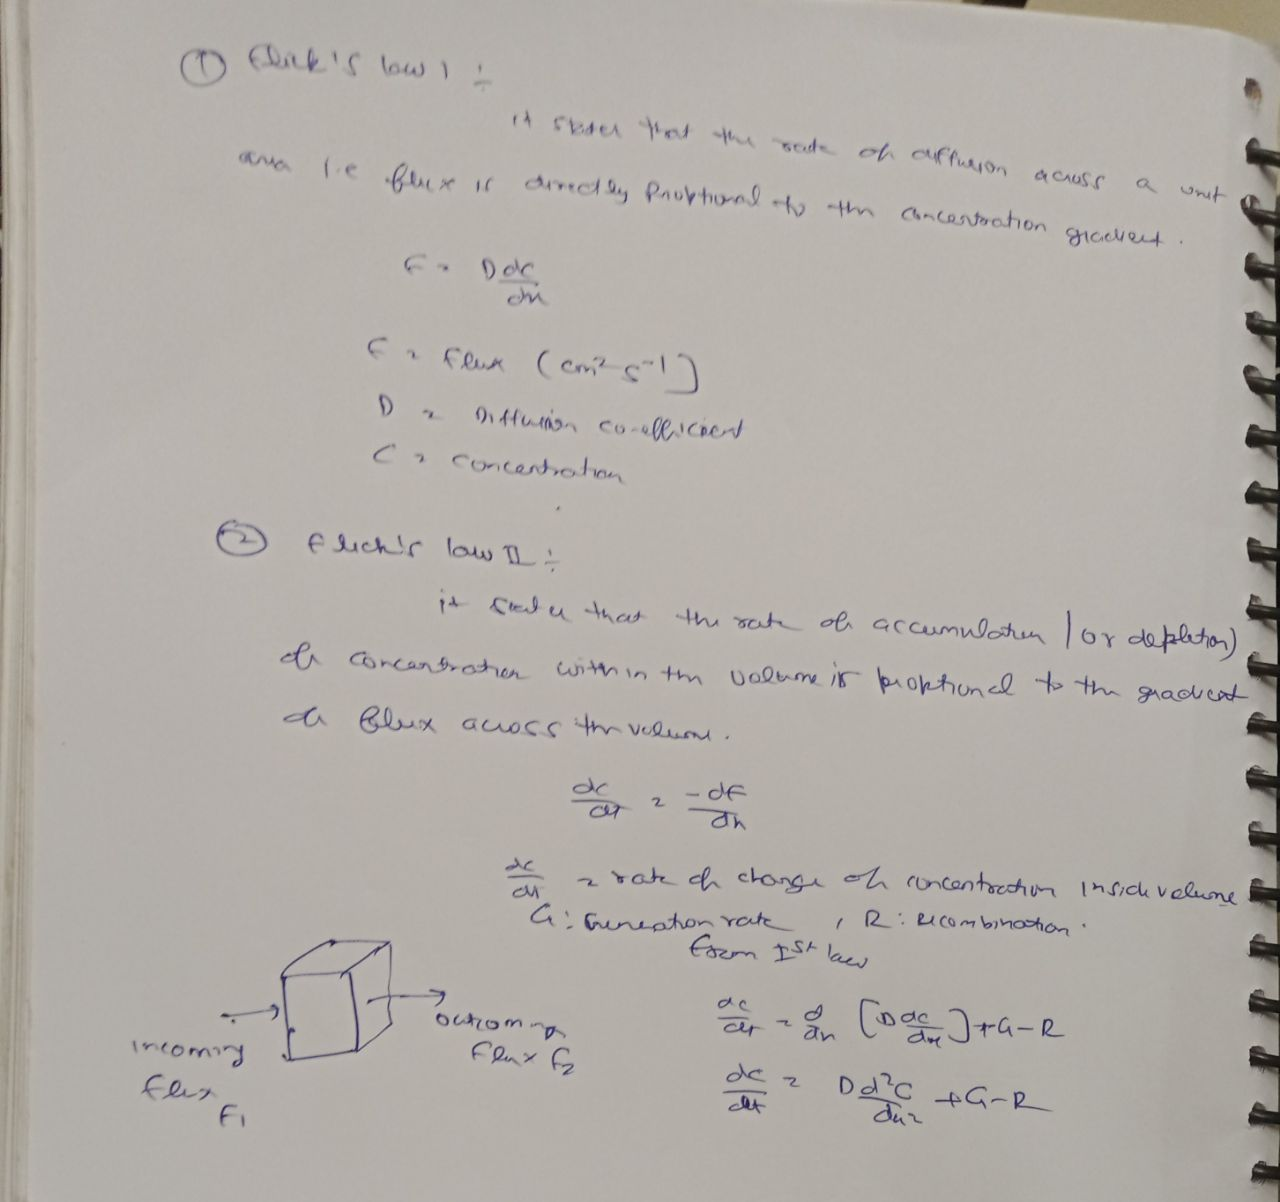 ① Flick's law I ÷
it states that the rate of diffusion across a unit
area i.e flux is directly proptional to the concentration gradient.
F = D dc/dx
F = Flux (cm² s⁻¹)
D = Diffusion co-efficient
C = concentration
② Flick's law II ÷
it states that the rate of accumulation (or depletion)
of concentration within the volume is proptional to the gradient
of flux across the volume.
dc/dt = -dF/dx
dc/dt = rate of change of concentration inside volume
G : Generation rate , R : Recombination.
from Ist law
dc/dt = d/dx [D dc/dx] + G - R
incoming flux F1
outcoming flux F2
dc/dt = D d²C/dx² + G - R